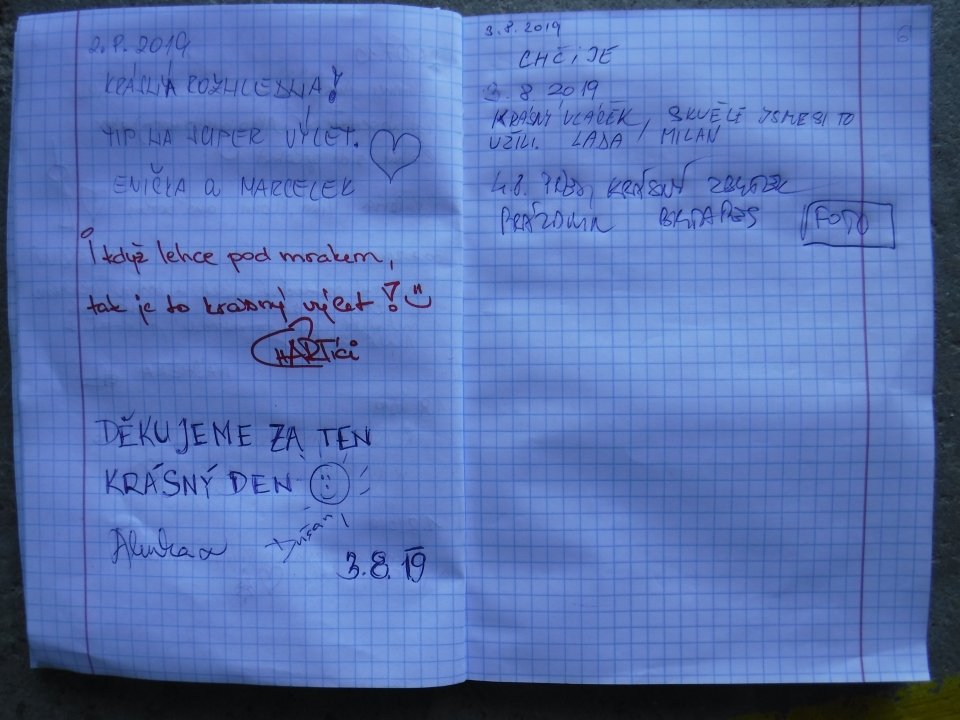 2.8.2019
KRÁSNÁ ROZHLEDNA!
TIP NA SUPER VÝLET.
ENIČKA a MARCELEK
I když lehce pod mrakem,
tak je to krásný výlet!
DĚKUJEME ZA TEN
KRÁSNÝ DEN
Alenka a Dušan
3.8.19
3.8.2019
CHČIJE
3.8 2019
KRÁSNÝ VLÁČEK, SKVĚLE JSME SI TO
UŽILI. LADA, MILAN
4.8. KRÁSNÝ ZBYTEK
PRÁZDNIN FOTO